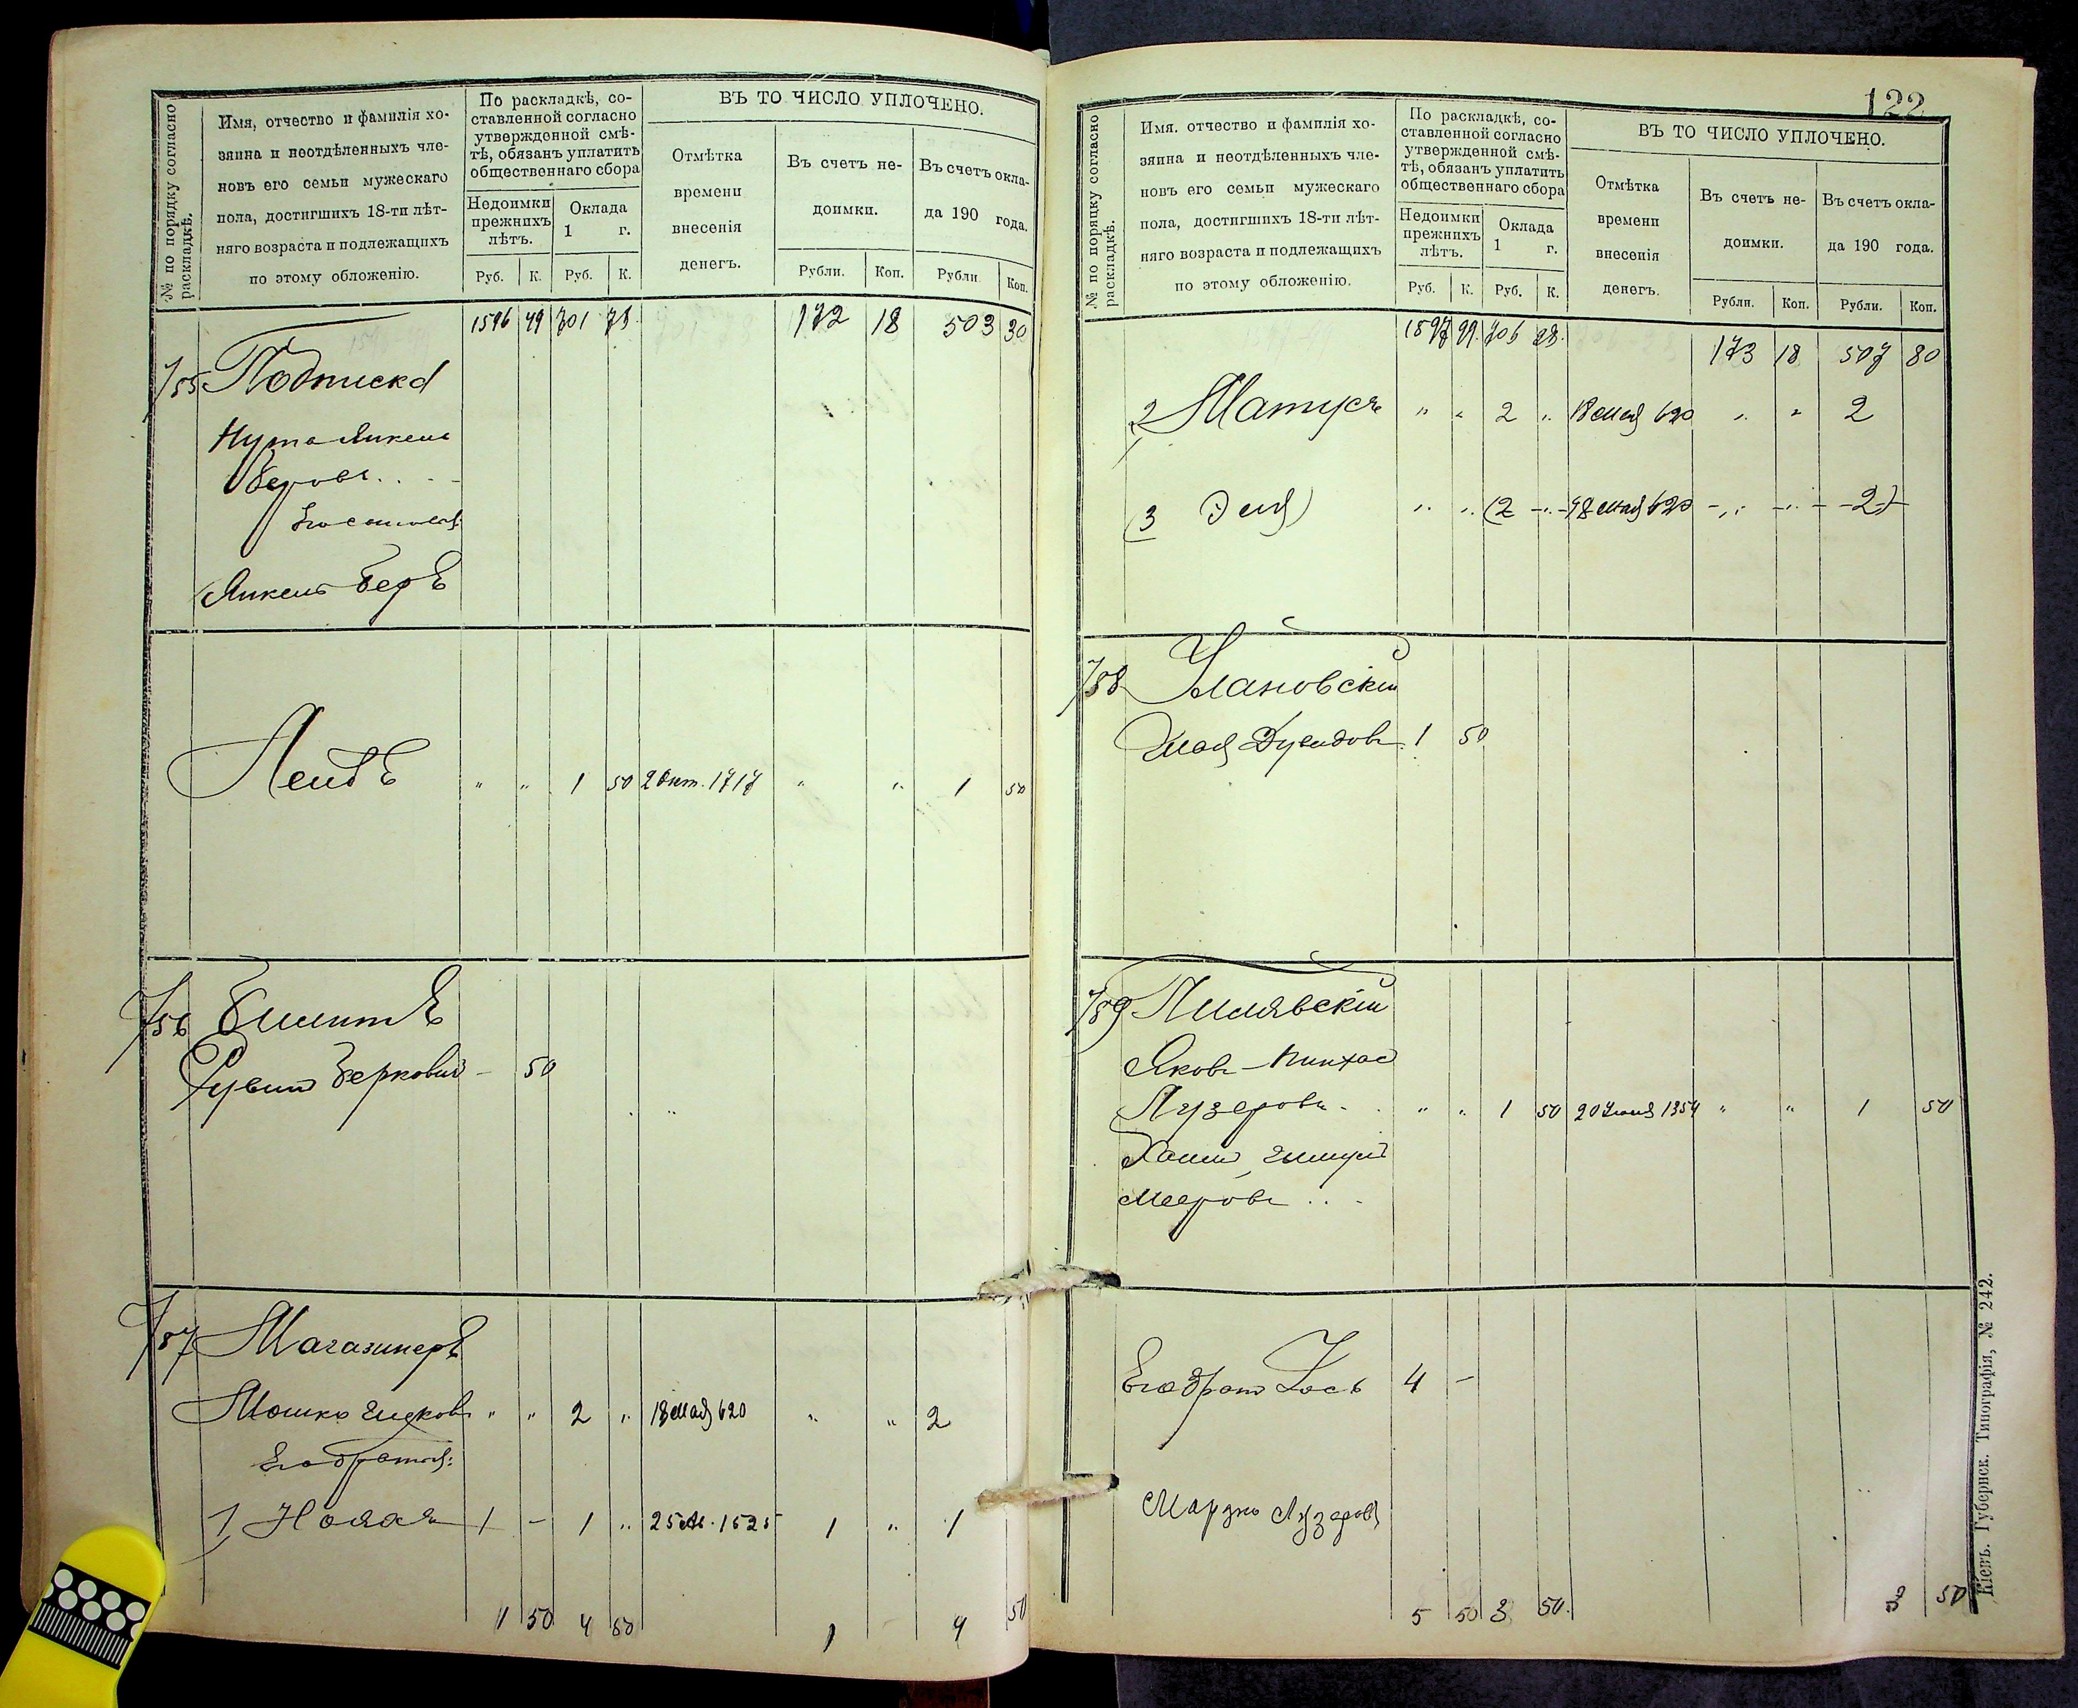 № по порядку согласно раскладкѣ.
Имя, отчество и фамилія хо-
зяина и неотдѣленныхъ чле-
новъ его семьи мужескаго
пола, достигшихъ 18-ти лѣт-
няго возраста и подлежащихъ
по этому обложенію.
По раскладкѣ, со-
ставленной согласно
утвержденной смѣ-
тѣ, обязанъ уплатить
общественнаго сбора
Недоимки
прежнихъ
лѣтъ.
Оклада
1 г.
Руб. К. Руб. К.
ВЪ ТО ЧИСЛО УПЛОЧЕНО.
Отмѣтка
времени
внесенія
денегъ.
Въ счетъ не-
доимки.
Рубли. Коп.
Въ счетъ окла-
да 190 года.
Рубли Коп.
1596 49 701 73 172 18 503 30
755 Подписка
Нута-Янкель
Беровъ . . -
Его сыновья:
Янкель-Беръ
Лейбъ " " 1 50 2 Окт. 1717 " " 1 50
756
Рувин Беркович - 50
757 Магазинеръ
Мошко Ицковъ " " 2 " 18 Мая 620 " " 2
Его братья:
1 1 - 1 " 1525 1 " 1
1 50 4 50 1 4 50
122
№ по порядку согласно раскладкѣ.
Имя. отчество и фамилія хо-
зяина и неотдѣленныхъ чле-
новъ его семьи мужескаго
пола, достигшихъ 18-ти лѣт-
няго возраста и подлежащихъ
по этому обложенію.
По раскладкѣ, со-
ставленной согласно
утвержденной смѣ-
тѣ, обязанъ уплатить
общественнаго сбора
Недоимки
прежнихъ
лѣтъ.
Оклада
1 г.
Руб. К. Руб. К.
ВЪ ТО ЧИСЛО УПЛОЧЕНО.
Отмѣтка
времени
внесенія
денегъ.
Въ счетъ не-
доимки.
Рубли. Коп.
Въ счетъ окла-
да 190 года.
Рубли. Коп.
1597 99 706 23 173 18 507 80
2 Матусъ " " 2 " 18 Мая 620 " " 2
(3 Эля) " " (2 - " - 18 Мая 620 - " - " - 2)
758 Улановскій
Дувидовъ 1 50
759 Пилявскій
Яковъ-Пинхас
Лузеровъ . . " " 1 50 20 1354 " " 1 50
Хаим,
Мееровъ . . -
Его брат Іось 4 -
Лузеровъ
5 50 3 50. 3 50
Кіевъ. Губернск. Типографія, № 242.